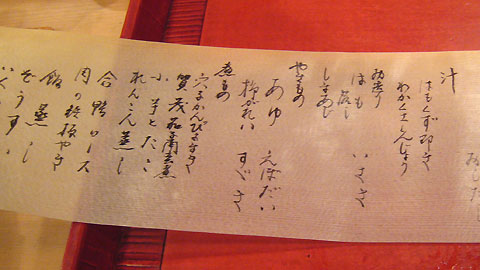 汁
はもくず叩き
わかくさしんじょう
お造り
はも落し
いさき
しまあじ
やきもの
あゆ
えぼだい
柳かれい
すゞき
煮もの
穴子かんぴょうまき
賀茂茄子南蛮煮
小芋とたこ
れんこん蒸し
合鴨ロース
肉の鉄板やき
飯蒸し
ぞうすい